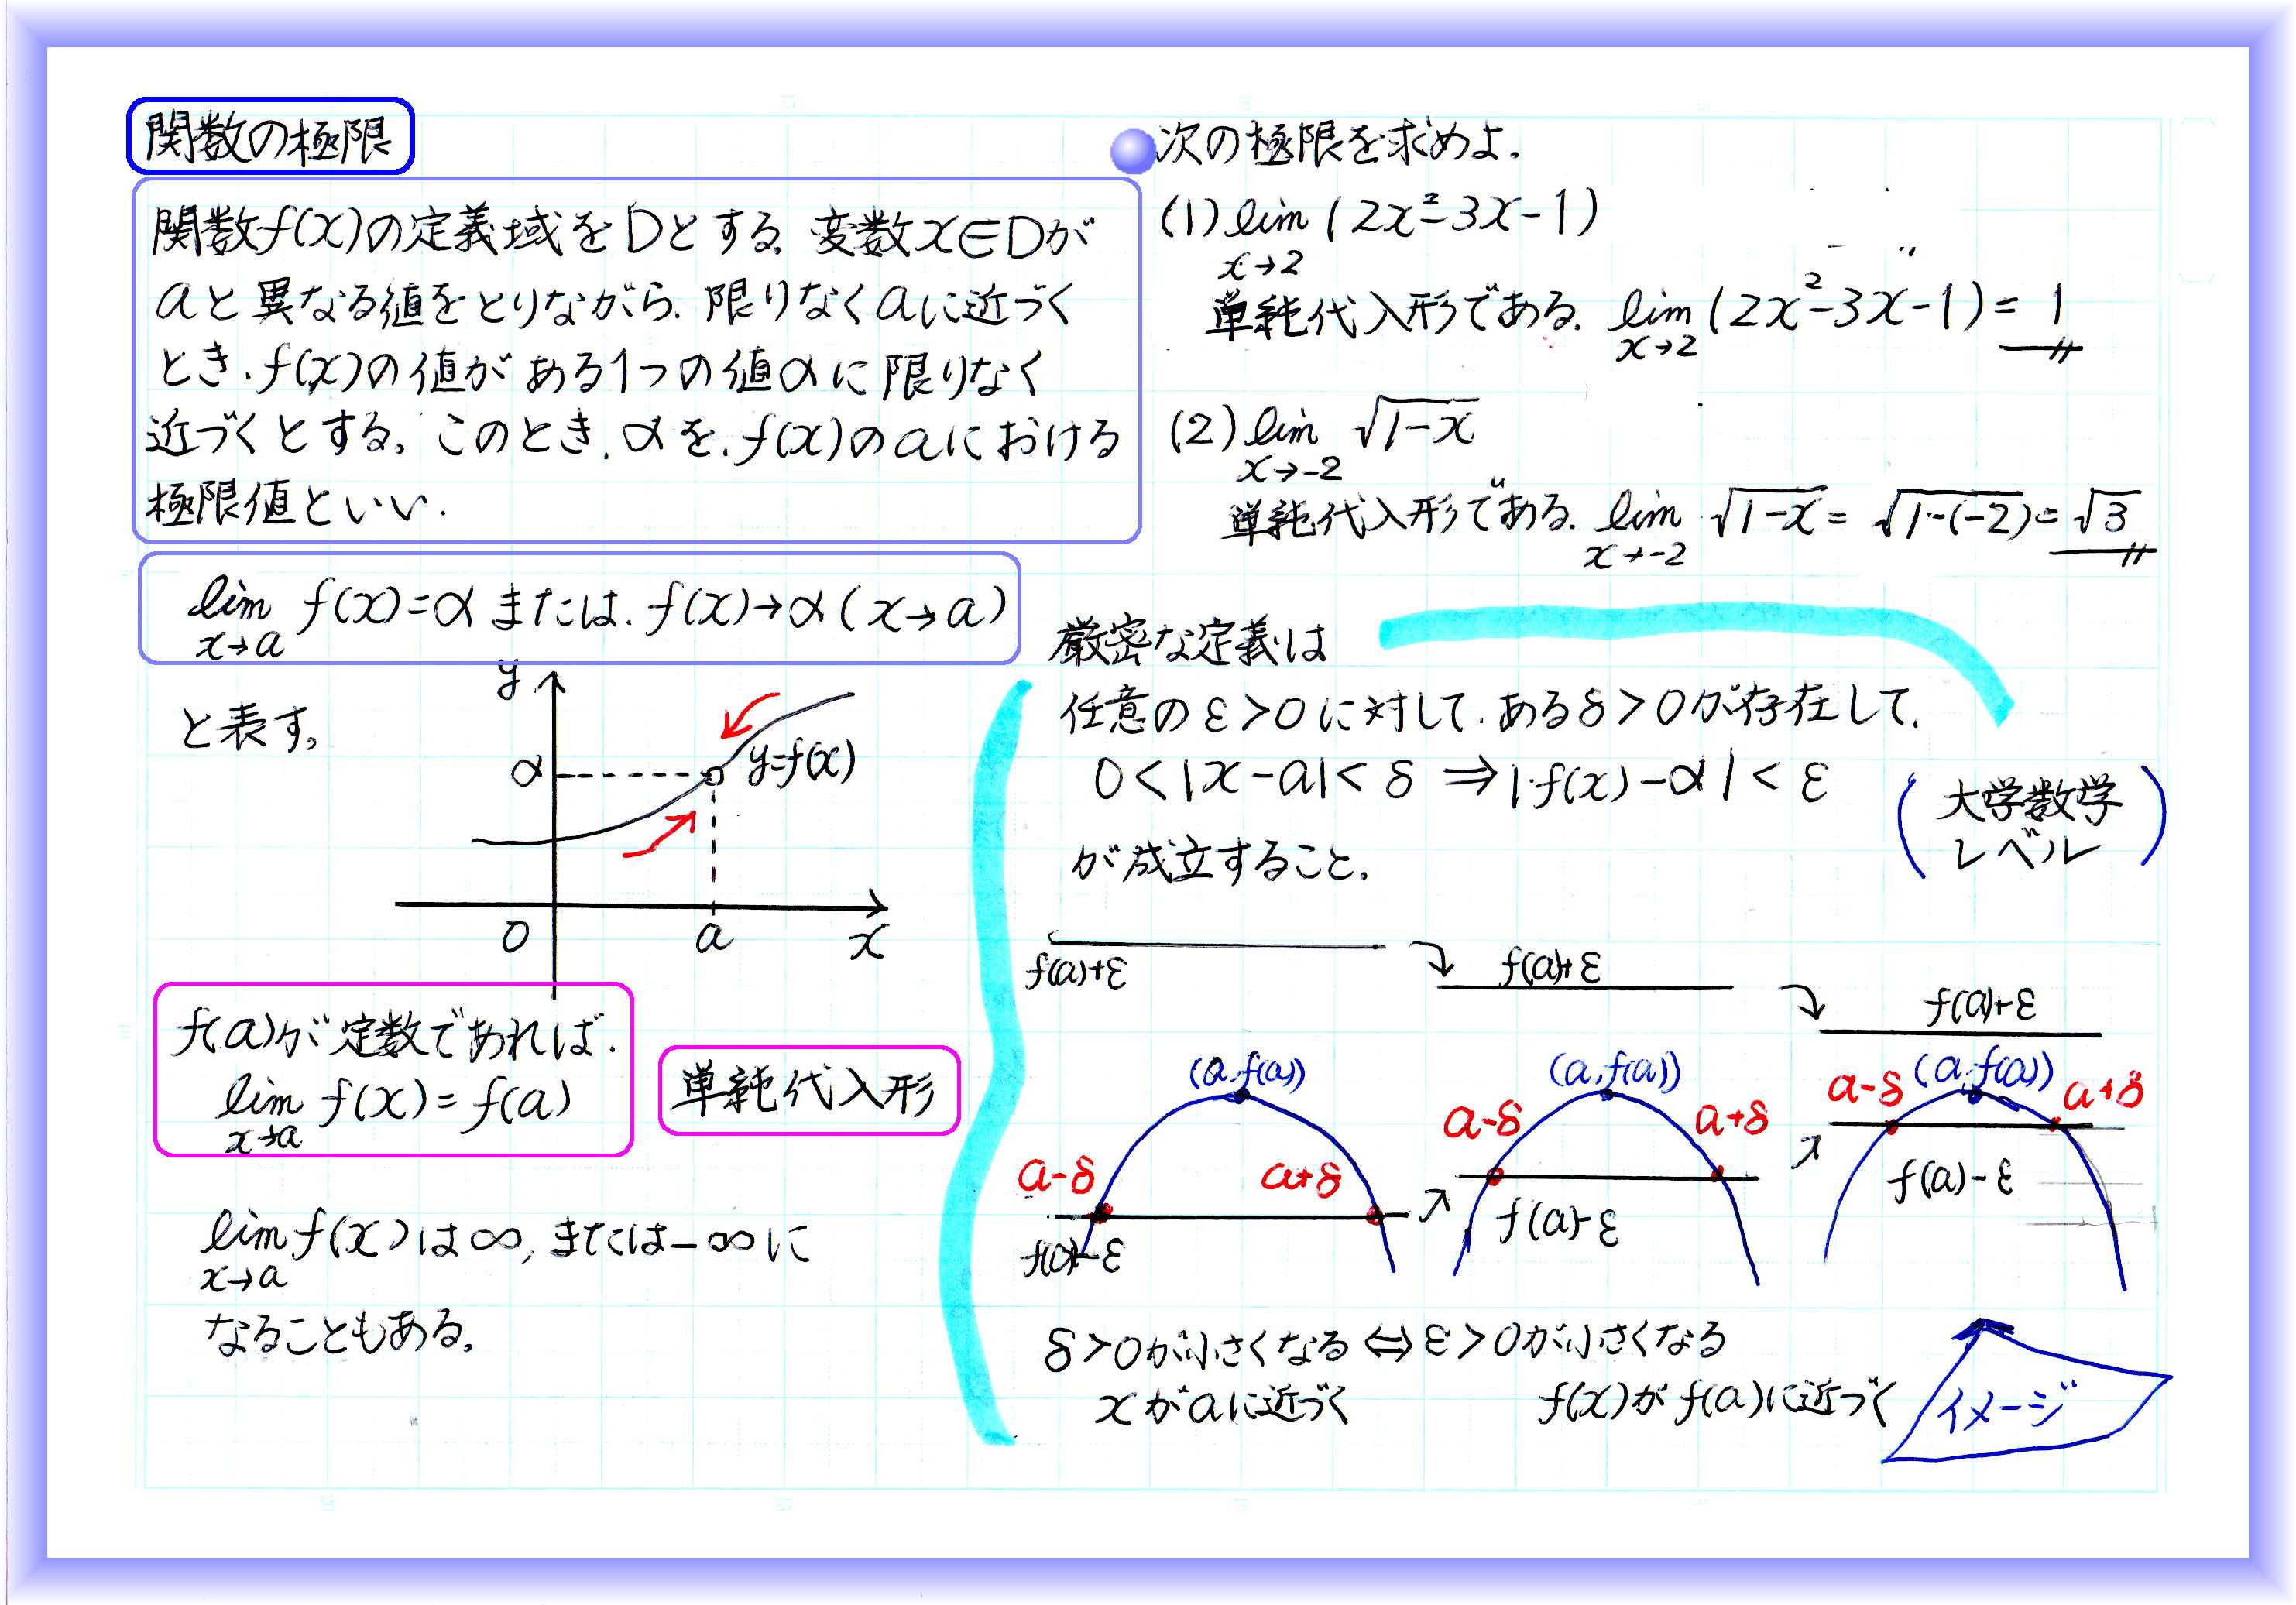 関数の極限
関数f(x)の定義域をDとする。変数x∈Dが
aと異なる値をとりながら、限りなくaに近づく
とき、f(x)の値がある1つの値αに限りなく
近づくとする。このとき、αを、f(x)のaにおける
極限値といい、
lim f(x)=αまたは、f(x)→α(x→a)
x→a
と表す。
y
α
y=f(x)
O
a
x
f(a)が定数であれば、
lim f(x)=f(a)
x→a
単純代入形
lim f(x)は∞, または-∞に
x→a
なることもある。
次の極限を求めよ。
(1) lim (2x²-3x-1)
x→2
単純代入形である。 lim (2x²-3x-1)=1
x→2
(2) lim √1-x
x→-2
単純代入形である。 lim √1-x=√1-(-2)=√3
x→-2
厳密な定義は
任意のε>0に対して、あるδ>0が存在して、
0<|x-a|<δ ⇒|f(x)-α|<ε
が成立すること。
(大学数学
レベル)
f(a)+ε
(a,f(a))
a-δ a+δ
f(a)-ε
f(a)+ε
(a,f(a))
a-δ a+δ
f(a)-ε
f(a)+ε
a-δ (a,f(a)) a+δ
f(a)-ε
δ>0が小さくなる⇔ε>0が小さくなる
xがaに近づく f(x)がf(a)に近づく
イメージ